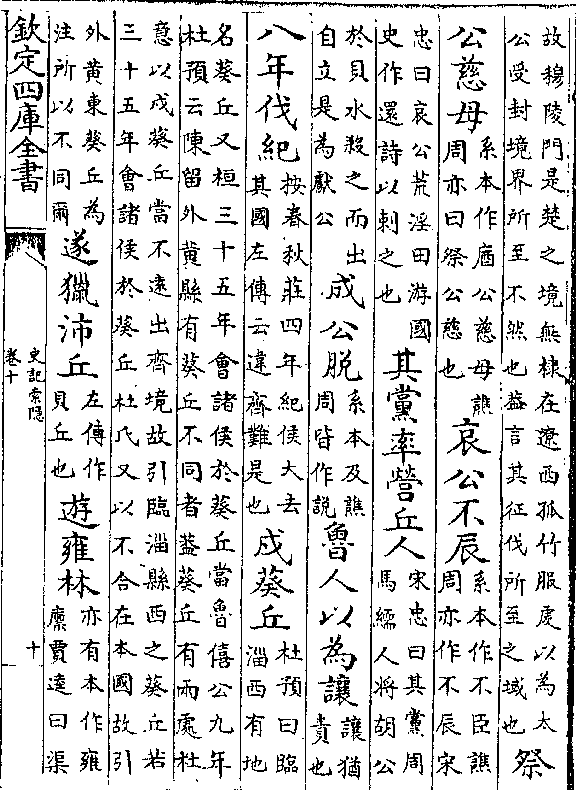 故穆陵門是楚之境無棣在遼西孤竹服虔以為太
公受封境界所至不然也葢言其征伐所至之域也
祭
公慈母
系本作庮公慈母譙
周亦曰祭公慈也
哀公不辰
系本作不臣譙
周亦作不辰宋
忠曰哀公荒淫田游國
史作還詩以刺之也
其黨率營丘人
宋忠曰其黨周
馬繻人將胡公
於貝水殺之而出
自立是為獻公
成公脱
系本及譙
周皆作説
魯人以為讓
讓猶
責也
八年伐紀
按春秋莊四年紀侯大去
其國左傳云違齊難是也
戍葵丘
杜預曰臨
淄西有地
名葵丘又桓三十五年會諸侯於葵丘當魯僖公九年
杜預云陳留外黄縣有葵丘不同者葢葵丘有兩處杜
意以戍葵丘當不遠出齊境故引臨淄縣西之葵丘若
三十五年會諸侯於葵丘杜氏又以不合在本國故引
外黄東葵丘為
注所以不同爾
遂獵沛丘
左傳作
貝丘也
遊雍林
亦有本作雍
廩賈逵曰渠
欽定四庫全書
史記索隱
卷十
十